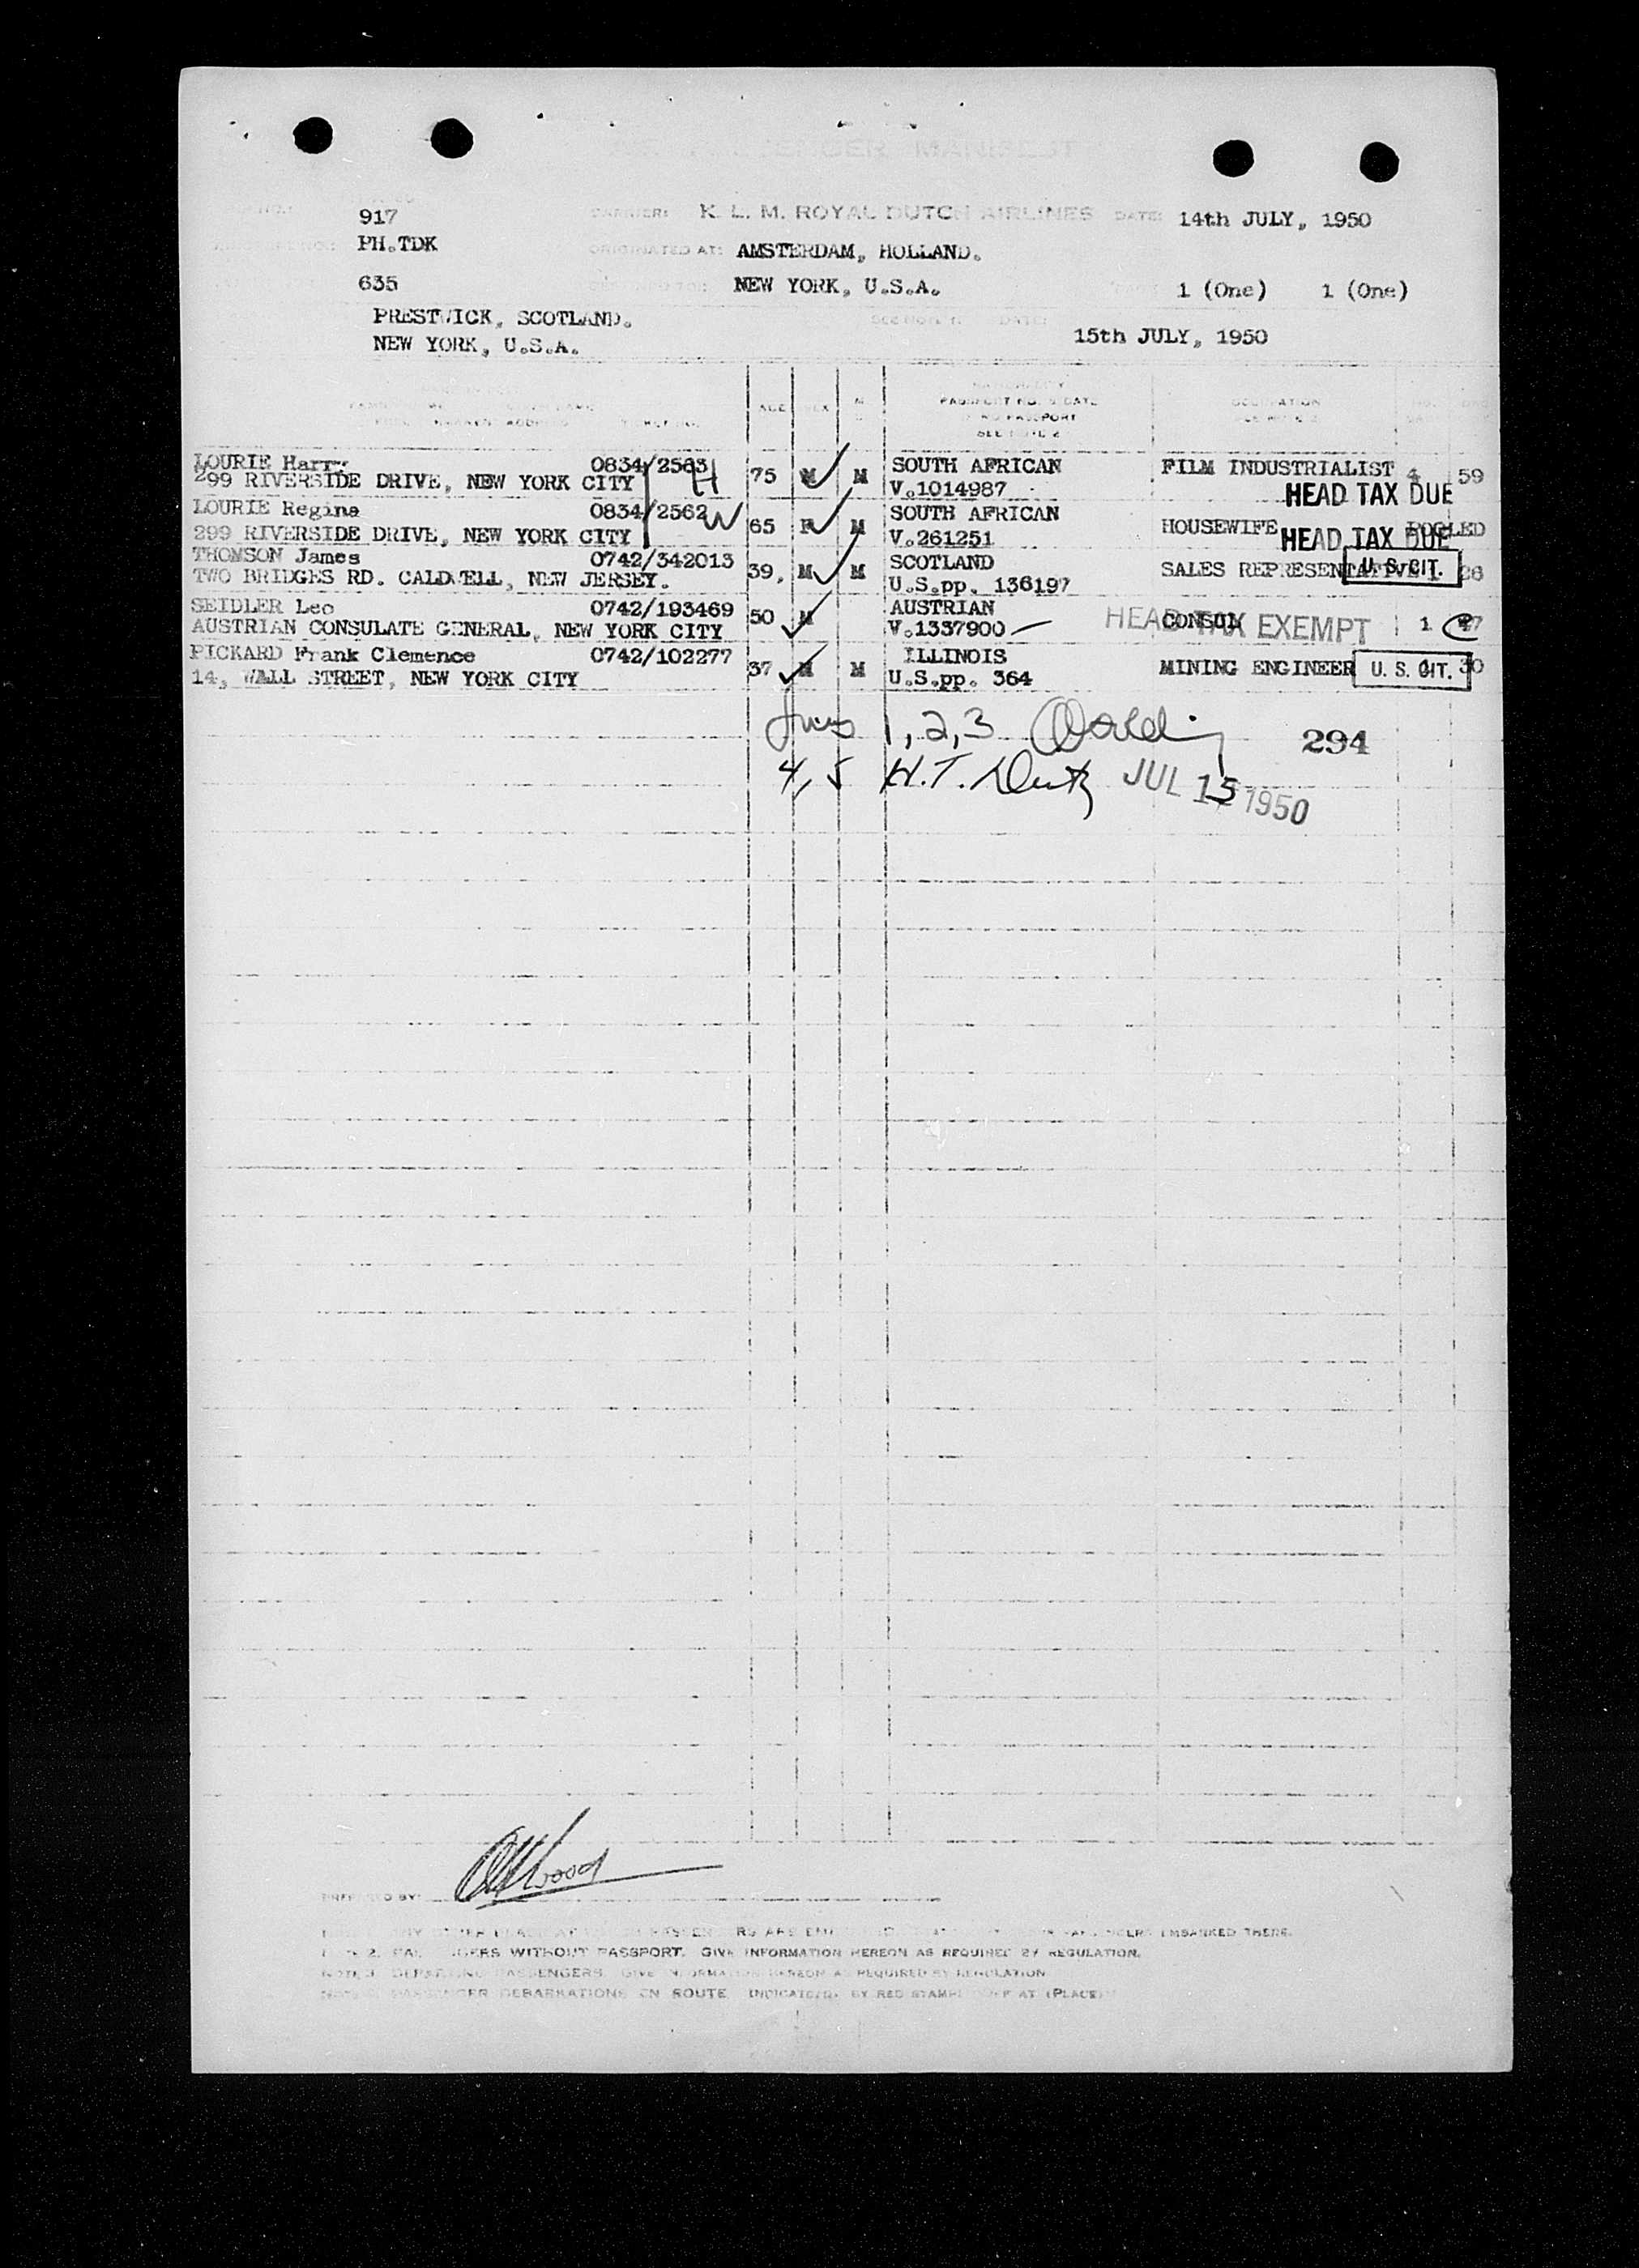 PASSENGER MANIFEST
917 CARRIER: K. L. M. ROYAL DUTCH AIRLINES DATE: 14th JULY, 1950
PH.TDK ORIGINATED AT: AMSTERDAM, HOLLAND.
635 NEW YORK, U.S.A. 1 (One) 1 (One)
PRESTWICK, SCOTLAND.
NEW YORK, U.S.A. 15th JULY, 1950
AGE SEX
PASSPORT NO. & DATE OCCUPATION
PASSPORT
SEE NOTE 2
LOURIE Harry 0834/2563 H 75 M M SOUTH AFRICAN FILM INDUSTRIALIST 4 59
299 RIVERSIDE DRIVE, NEW YORK CITY V.1014987 HEAD TAX DUE
LOURIE Regina 0834/2562 W 65 F M SOUTH AFRICAN HOUSEWIFE POOLED
299 RIVERSIDE DRIVE, NEW YORK CITY V.261251 HEAD TAX DUE
THOMSON James 0742/342013 39. M M SCOTLAND SALES REPRESENTATIVE U. S. CIT.
TWO BRIDGES RD. CALDWELL, NEW JERSEY. U.S.pp. 136197
SEIDLER Leo 0742/193469 50 M AUSTRIAN CONSUL HEAD TAX EXEMPT 1
AUSTRIAN CONSULATE GENERAL, NEW YORK CITY V.1337900
PICKARD Frank Clemence 0742/102277 37 M M ILLINOIS MINING ENGINEER U. S. CIT. 30
14, WALL STREET, NEW YORK CITY U.S.pp. 364
1, 2, 3 294
4, 5 H.T. JUL 15 1950
PREPARED BY:
EMBARKED THERE.
PASSENGERS WITHOUT PASSPORT. GIVE INFORMATION HEREON AS REQUIRED BY REGULATION.
NOTE 3. DEPARTING PASSENGERS. GIVE INFORMATION HEREON AS REQUIRED BY REGULATION
PASSENGER DEBARKATIONS EN ROUTE INDICATED BY RED STAMP AT (PLACE)